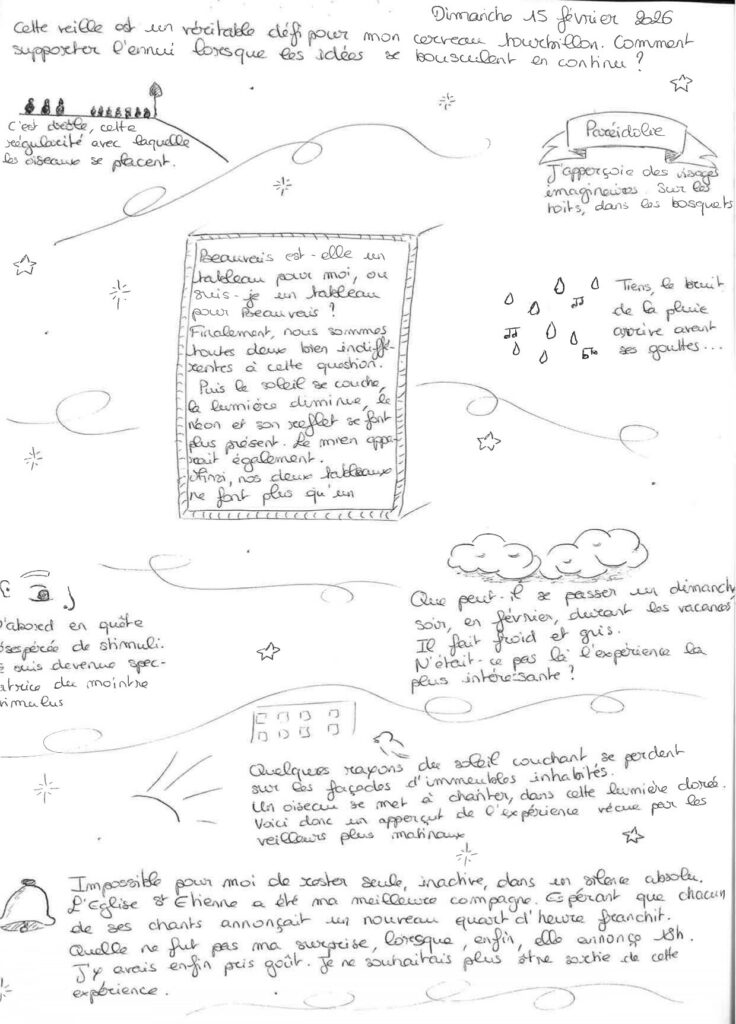 Dimanche 15 février 2026
Cette veille est un véritable défi pour mon cerveau tourbillon. Comment
supporter l'ennui lorsque les idées se bousculent en continu ?
C'est drôle, cette
régularité avec laquelle
les oiseaux se placent.
Paréidolie
J'apperçoie des visages
imagineires. Sur les
toits, dans les bosquets
Beauvais est-elle un
tableau pour moi, ou
suis-je un tableau
pour Beauvais ?
Finalement, nous sommes
toutes deux bien indiffé-
rentes à cette question.
Puis le soleil se couche,
la lumière diminue, le
néon et son reflet se font
plus présent. Le mien appa-
rait également.
Ainsi, nos deux tableaux
ne font plus qu'un
Tiens, le bruit
de la pluie
arrive avant
ses gouttes...
D'abord en quête
désespérée de stimuli.
suis devenue spec-
tatrice du mointre
stimulus
Que peut-il se passer un dimanche
soir, en février, durant les vacances
Il fait froid et gris.
N'était-ce pas là l'expérience la
plus intéressante ?
Quelques rayons du soleil couchant se perdent
sur les façades d'immeubles inhabités.
Un oiseau se met à chanter, dans cette lumière dorée.
Voici donc un apperçut de l'expérience vécue par les
veilleurs plus matinaux
Impossible pour moi de rester seule, inactive, dans un silence absolu.
L'Eglise St Etienne a été ma meilleure compagne. Espérant que chacun
de ses chants annonçait un nouveau quart d'heure franchit.
Quelle ne fut pas ma surprise, lorsque, enfin, elle annonça 18h.
J'y avais enfin pris goût. Je ne souhaitais plus être sortie de cette
expérience.